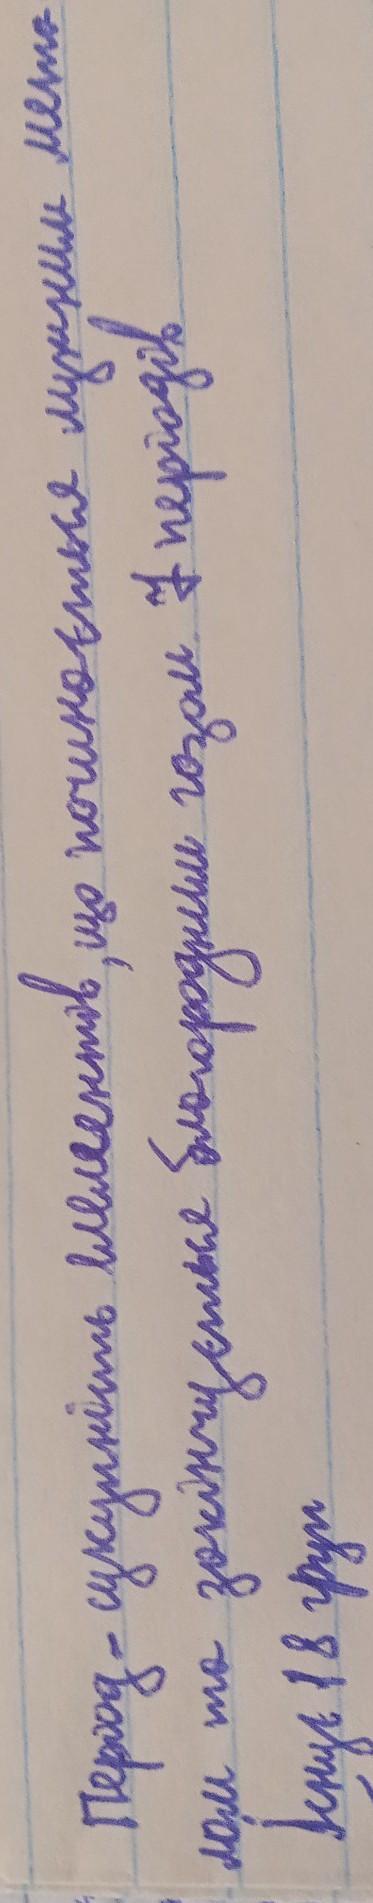 Період - сукупність елементів, що починається лужним мета
лом та закінчується благородним газом. 7 періодів
Існує 18 груп